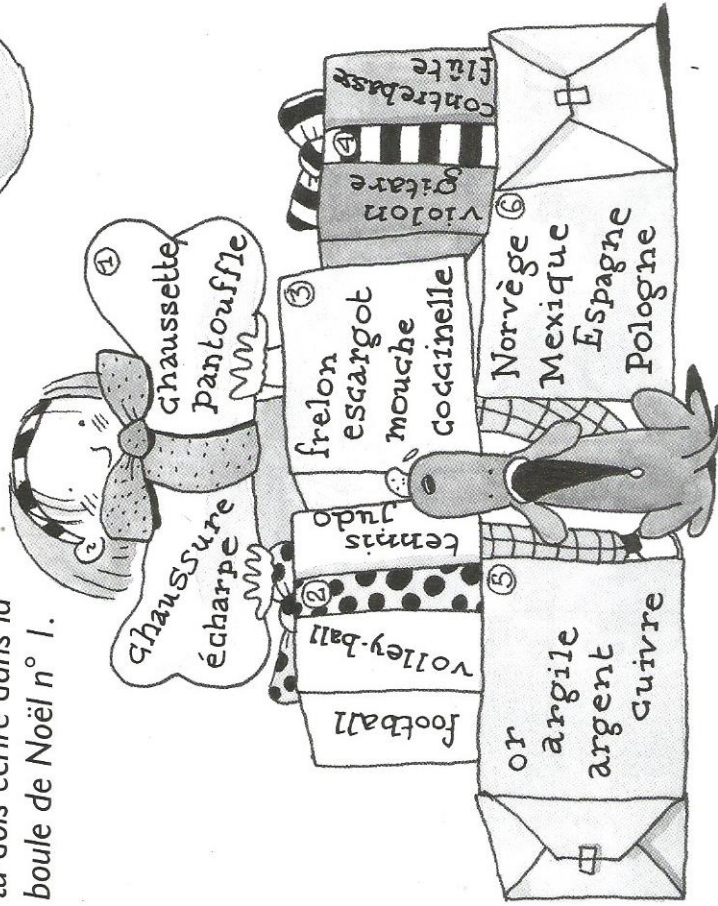 tu dois écrire dans la
boule de Noël n° 1.
①
chaussure
écharpe
chaussette
pantouffle
②
football
volley-ball
tennis
judo
③
frelon
escargot
mouche
coccinelle
④
violon
gitare
contrebasse
flûte
⑤
or
argile
argent
cuivre
⑥
Norvège
Mexique
Espagne
Pologne